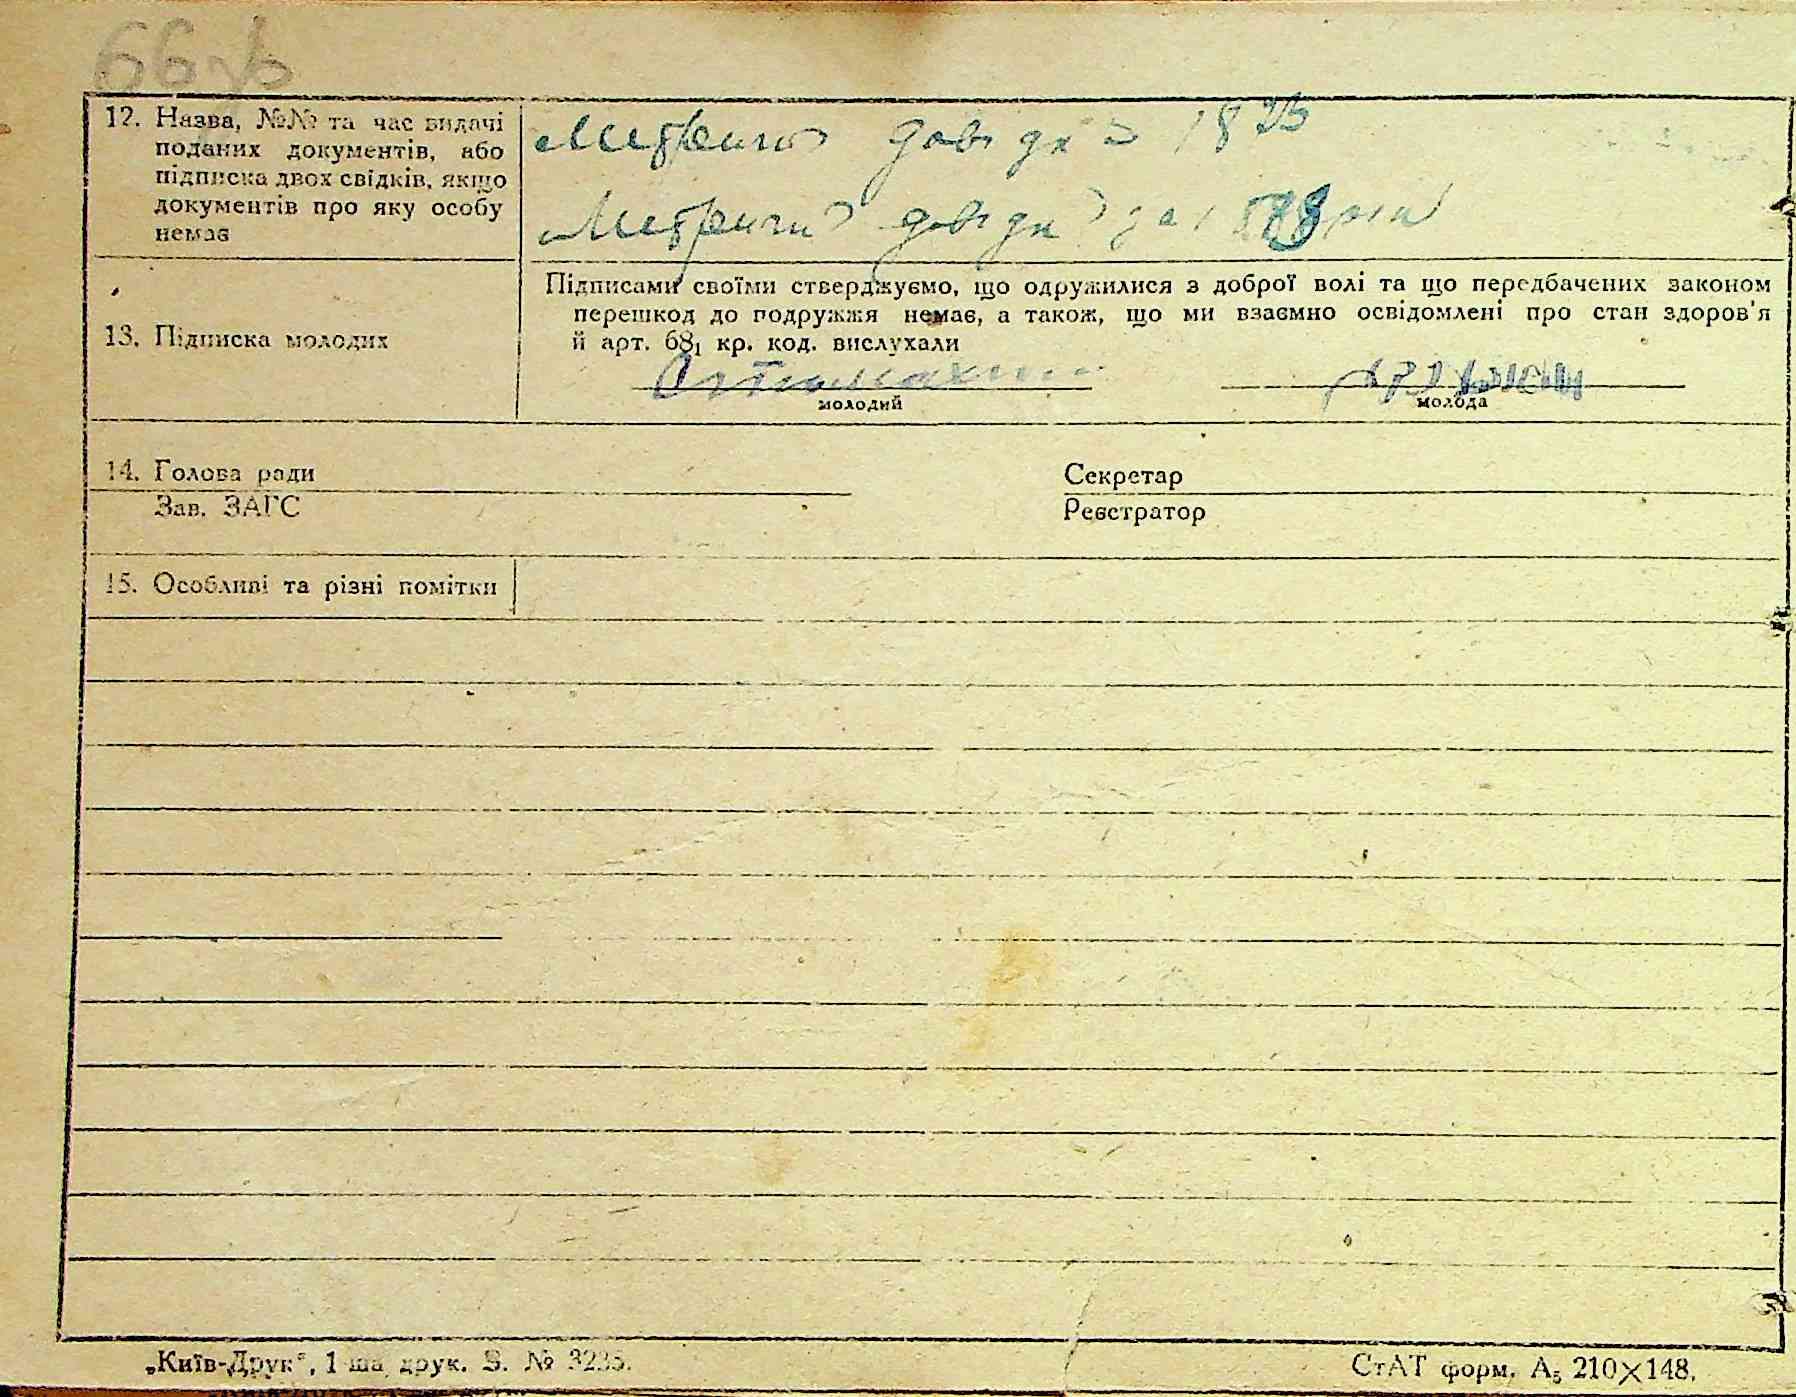 66зв
12. Назва, №№ та час видачі
поданих документів, або
підписка двох свідків, якщо
документів про яку особу
немає
Метрична довідка 18
Метрична довідка за 1888 рік
13. Підписка молодих
Підписами своїми стверджуємо, що одружилися з доброї волі та що передбачених законом
перешкод до подружжя немає, а також, що ми взаємно освідомлені про стан здоров'я
й арт. 68₁ кр. код. вислухали
молодий
молода
14. Голова ради
Секретар
Зав. ЗАГС
Реєстратор
15. Особливі та різні помітки
„Київ-Друк“, 1-ша друк. З. № 3235.
СтАТ форм. А₅ 210×148.